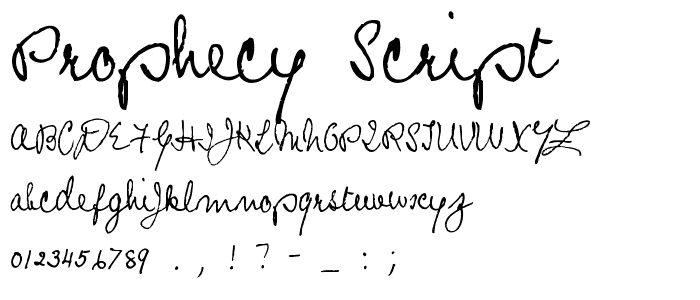 Prophecy Script
ABCDEFGHIJKLMNOPQRSTUVWXYZ
abcdefghijklmnopqrstuvwxyz
0123456789 . , ! ? - _ : ;